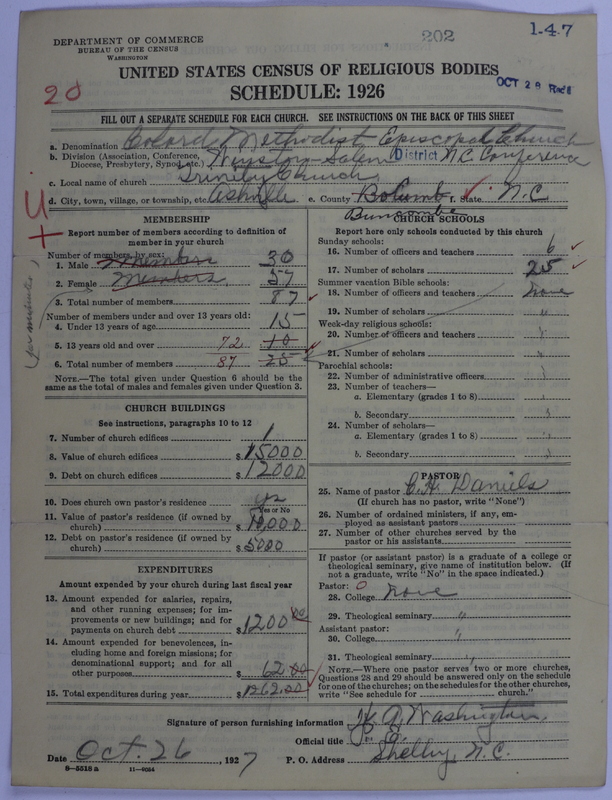 DEPARTMENT OF COMMERCE
BUREAU OF THE CENSUS
WASHINGTON
202
1-4-7
OCT 28 Rec'd
UNITED STATES CENSUS OF RELIGIOUS BODIES
SCHEDULE: 1926
20
FILL OUT A SEPARATE SCHEDULE FOR EACH CHURCH. SEE INSTRUCTIONS ON THE BACK OF THIS SHEET
a. Denomination Colard Methodist Episcopal Church
b. Division (Association, Conference, Diocese, Presbytery, Synod, etc.) Winston-Salem District N.C. Conference
c. Local name of church Trinety Church
d. City, town, village, or township, etc. Ashville e. County Bolumb f. State N.C
Buncombe
MEMBERSHIP
Report number of members according to definition of
member in your church
Number of members, by sex:
1. Male Members 30
2. Female Members 57
3. Total number of members 87
Number of members under and over 13 years old:
4. Under 13 years of age 15
5. 13 years old and over 72 10
6. Total number of members 87 25
NOTE.—The total given under Question 6 should be
same as the total of males and females given under Question 3.
CHURCH BUILDINGS
See instructions, paragraphs 10 to 12
7. Number of church edifices 1
8. Value of church edifices $15000
9. Debt on church edifices $12000
10. Does church own pastor's residence yes
Yes or No
11. Value of pastor's residence (if owned by
church) $10,000
12. Debt on pastor's residence (if owned by
church) $5000
EXPENDITURES
Amount expended by your church during last fiscal year
13. Amount expended for salaries, repairs,
and other running expenses; for im-
provements or new buildings; and for
payments on church debt $1200 00
14. Amount expended for benevolences, in-
cluding home and foreign missions; for
denominational support; and for all
other purposes $62.00
15. Total expenditures during year $1262.00
CHURCH SCHOOLS
Report here only schools conducted by this church
Sunday schools:
16. Number of officers and teachers 6
17. Number of scholars 25
Summer vacation Bible schools:
18. Number of officers and teachers none
19. Number of scholars "
Week-day religious schools:
20. Number of officers and teachers "
21. Number of scholars "
Parochial schools:
22. Number of administrative officers
23. Number of teachers—
a. Elementary (grades 1 to 8)
b. Secondary
24. Number of scholars—
a. Elementary (grades 1 to 8)
b. Secondary
PASTOR
25. Name of pastor C.H. Daniels
(If church has no pastor, write "None")
26. Number of ordained ministers, if any, em-
ployed as assistant pastors
27. Number of other churches served by the
pastor or his assistants
If pastor (or assistant pastor) is a graduate of a college or
theological seminary, give name of institution below. (If
not a graduate, write "No" in the space indicated.)
Pastor: 0
28. College none
29. Theological seminary "
Assistant pastor:
30. College "
31. Theological seminary "
NOTE.—Where one pastor serves two or more churches,
Questions 28 and 29 should be answered only on the schedule
for one of the churches; on the schedules for the other churches,
write "See schedule for church."
Signature of person furnishing information A. Washington
Official title P. E.
Date Oct. 26, 1927 P. O. Address Shelby, N.C.
8—5518 a 11—9054